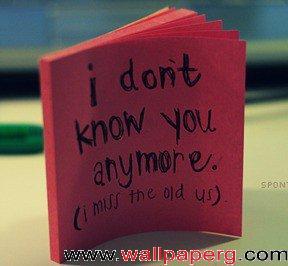 i don't
know you
anymore.
(i miss the old us).
SPONT
www.wallpaperg.com